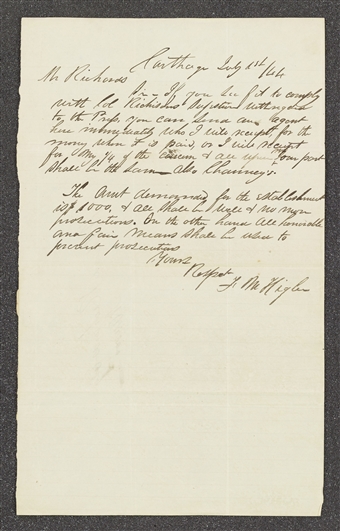 Carthage July 1st/44
Mr Richards
Sir - If you see fit to comply
with Col Richisons with
to the Press, you can send an agent
here immediately who I will receipt for the
money when it is paid, or I will receipt
for my 1/4 of the concern & all our part
shall be the same also Chauncy's.
The Amt demanded for the establishment
is $1000, & all shall be & no more
prosecutions. On the other hand all honorable
and fair means shall be used to
prevent prosecutions
Yours
Respct
F. M. Higbee